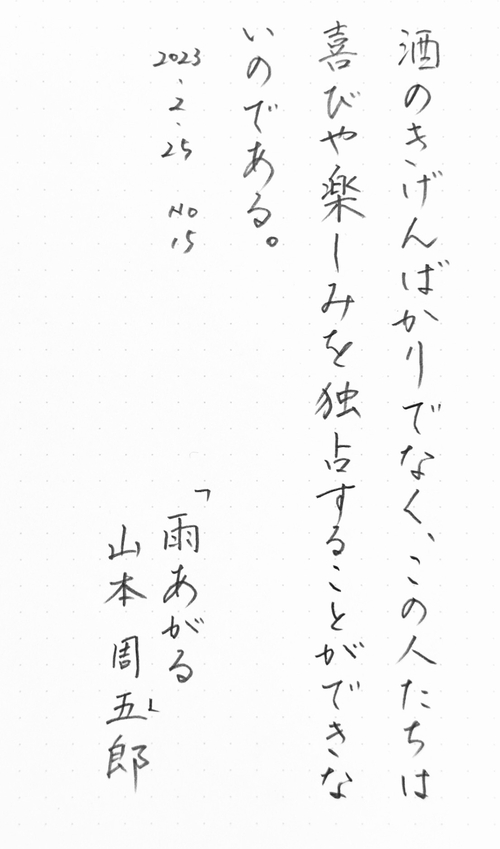 酒のきげんばかりでなく、この人たちは
喜びや楽しみを独占することができな
いのである。
2023.2.25 No15
「雨あがる」
山本周五郎